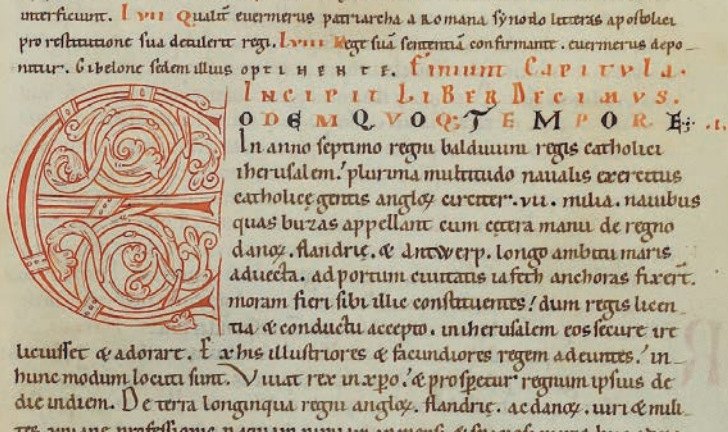 interficiunt. lvii Qualit̄ euermerus patriarcha a Romana synodo litteras apostolici
pro restitutione sua detulerit regi. lviii Rege suā sententiā confirmante. euermerus depo-
nitur. Gibelone sedem illius OPTINENTE. Finiunt Capitula.
INCIPIT LIBER DECIMVS.
EODEM QVOQ; TEMPORE; .I.
In anno septimo regni balduuini regis catholici
iherusalem. plurima multitudo naualis exercitus
catholicę gentis angloꝝ circiter .vii. milia. nauibus
quas buzas appellant cum cętera manu de regno
danoꝝ. flandrię. & antwerp. longo ambitu maris
aduecta. ad portum ciuitatis iafeth anchoras fixer̄t.
moram fieri sibi illic constituentes! dum regis licen-
tia & conductu accepto. in iherusalem eos secure ire
licuisset & adorare. Ex his illustriores & facundiores regem adeuntes. in
hunc modum locuti sunt. Viuat rex in xp̄o. & prosperetur regnum ipsius de
die in diem. De terra longinqua regni angloꝝ. flandrię. ac danoꝝ. uiri & mili-